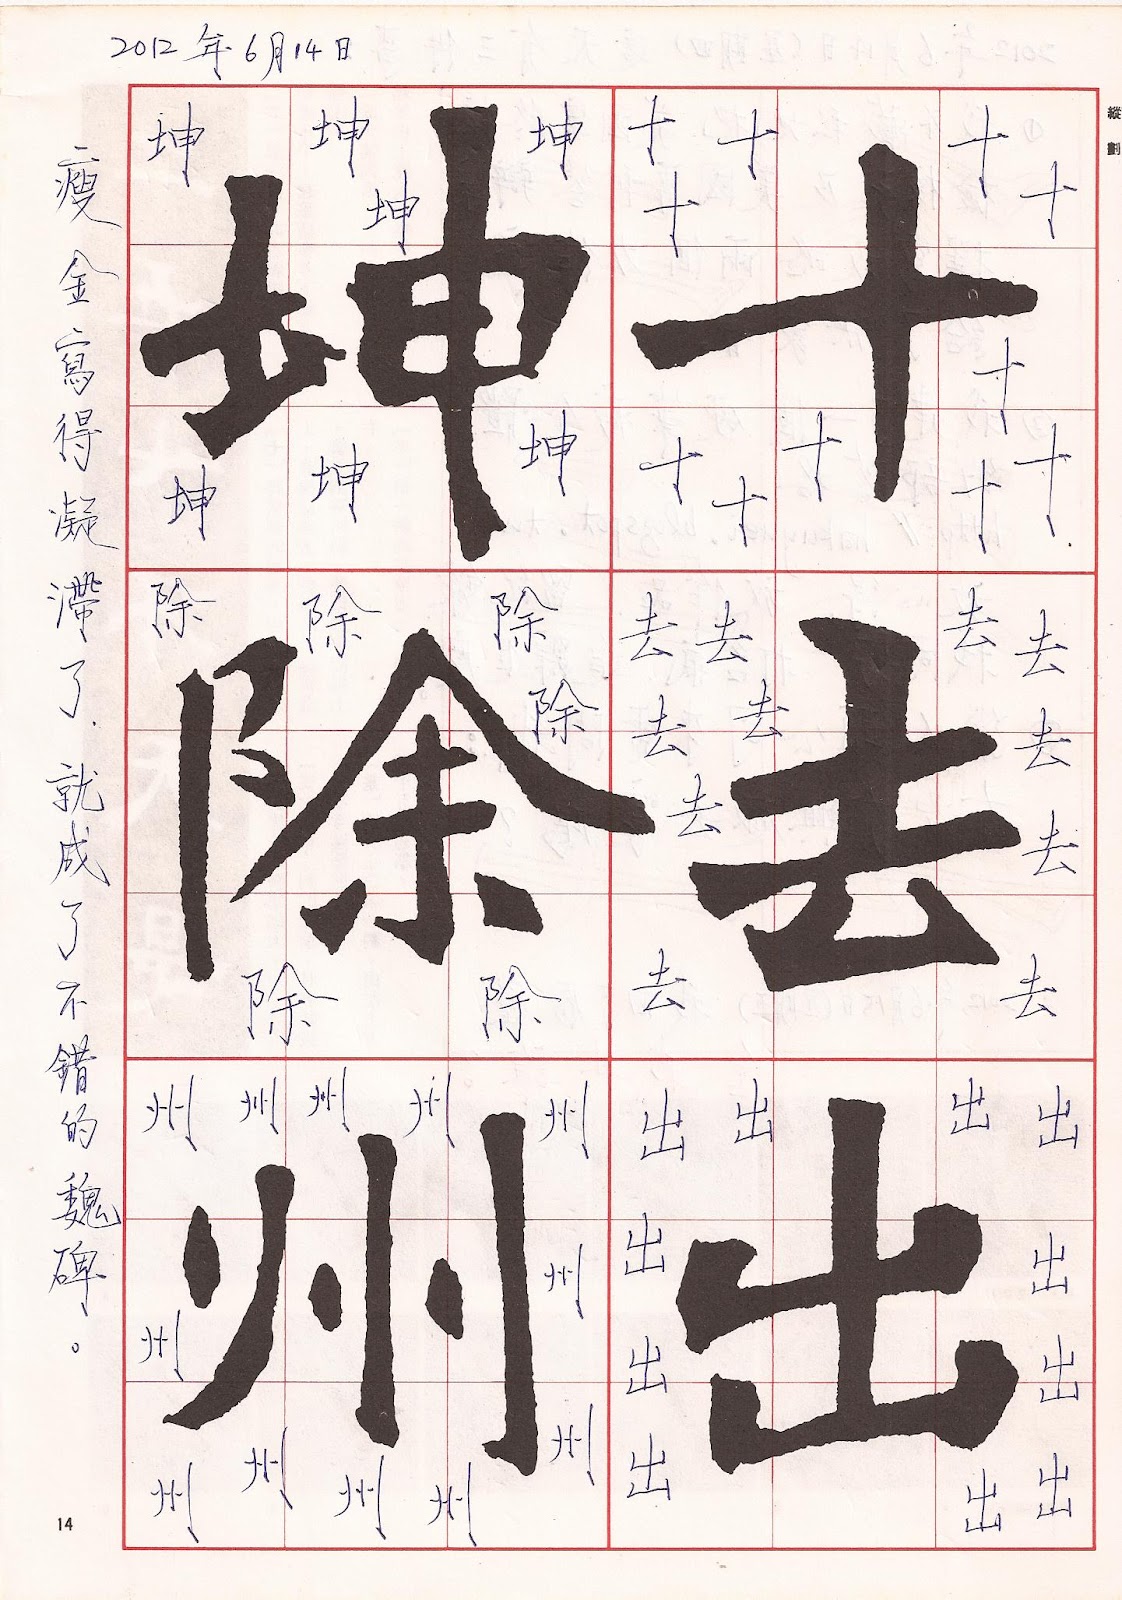 2012年6月14日
縱劃
十 十 十 十 十 十 十 十 十 十 十 十
去 去 去 去 去 去 去 去 去 去 去
出 出 出 出 出 出 出 出 出 出 出
坤 坤 坤 坤 坤 坤 坤 坤
除 除 除 除 除 除 除
州 州 州 州 州 州 州 州 州 州 州 州 州
瘦金寫得凝滯了.就成了不錯的魏碑。
14